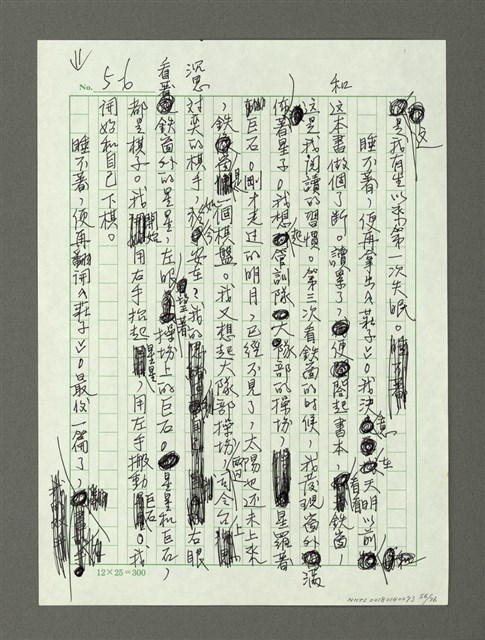 No. 5-6
是我有生以來第一次失眠。
睡不著，便再拿出《莊子》。我決意在天明以前和
這本書做個了斷。讀累了，便閤起書本，看看鐵窗，
這是我閱讀的習慣。第三次看鐵窗的時候，我發現窗外滿
佈著星子。我想起管訓隊大隊部的操場，星羅著
巨石。剛才來過的明月，已經不見了，太陽也還未上來
，鐵窗是個棋盤。我又想起大隊部操場，司令台兩
對奕的棋手，如今安在？我的右眼
看著鐵窗外的星星，左眼望著操場上的巨石。星星和巨石，
都是棋子。我開始用右手抬起星星，用左手搬動巨石。我
開始和自己下棋。
睡不著，便再翻開《莊子》。最後一篇了，
沉思
12×25=300